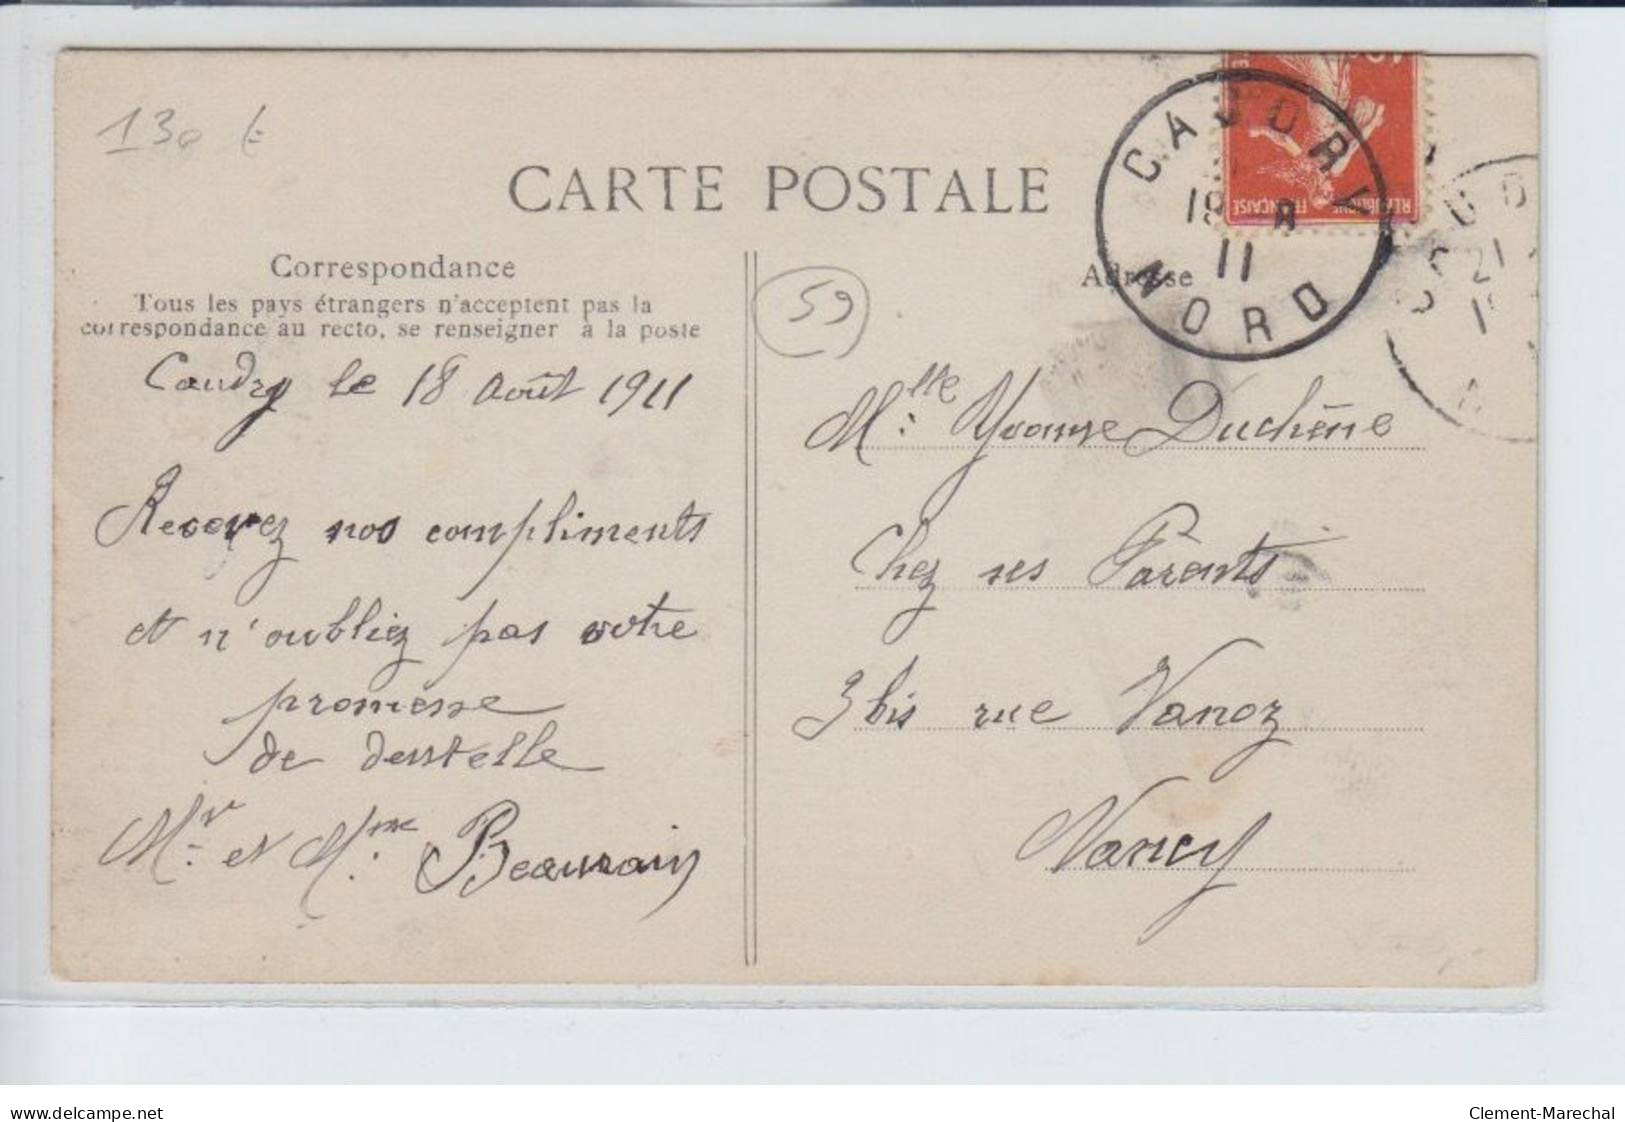 130 €
CARTE POSTALE
Correspondance
Tous les pays étrangers n'acceptent pas la
correspondance au recto, se renseigner à la poste
Caudry le 18 Août 1911
Recevez nos compliments
et n'oubliez pas votre
promesse
de
Mr. et Mme. Beauvain
59
Adresse
Mlle. Yvonne Duchêne
Chez ses Parents
3 bis rue Vanoz
Nancy
CAUDRY
11
NORD
RÉPUBLIQUE FRANÇAISE
21
delcampe.net
Clement-Marechal